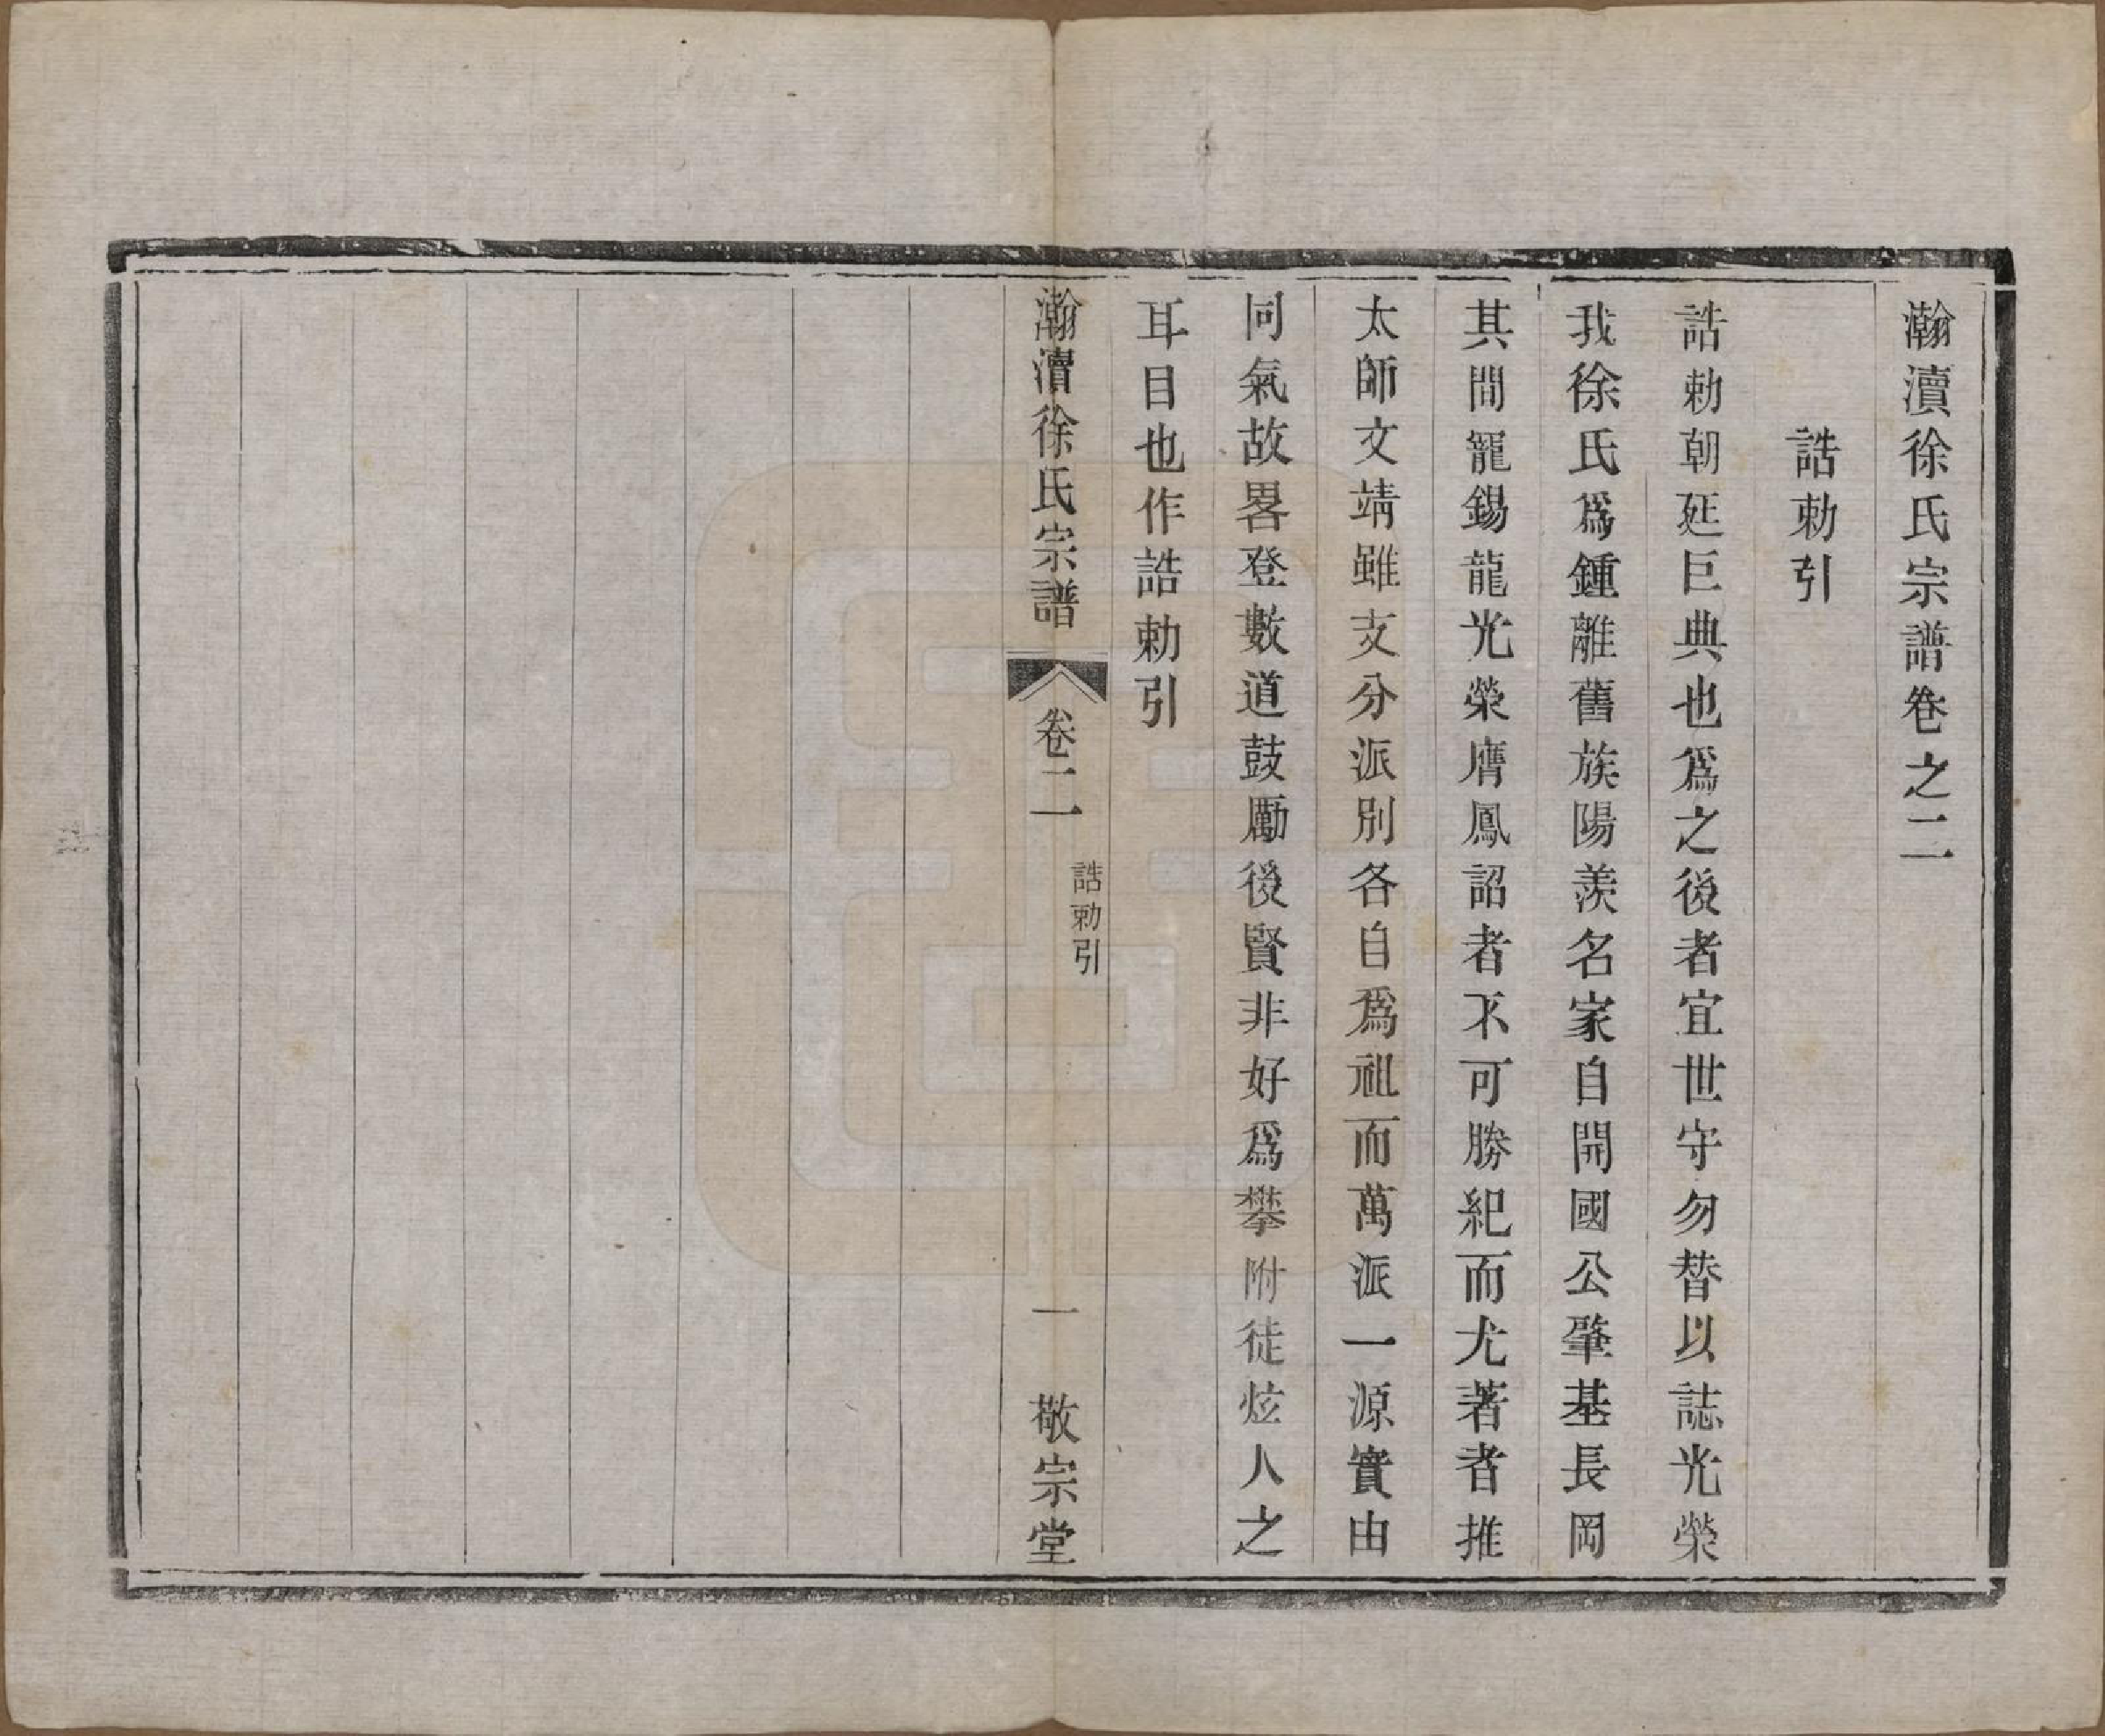 瀚瀆徐氏宗譜卷之二
誥勅引
誥勅朝廷巨典也爲之後者宜世守勿替以誌光榮
我徐氏爲鍾離舊族陽羨名家自開國公肇基長岡
其間寵錫龍光榮膺鳳詔者不可勝紀而尤著者推
太師文靖雖支分派別各自爲祖而萬派一源實由
同氣故畧登數道鼓勵後賢非好爲攀附徒炫人之
耳目也作誥勅引
瀚瀆徐氏宗譜 卷二 誥勅引 一 敬宗堂